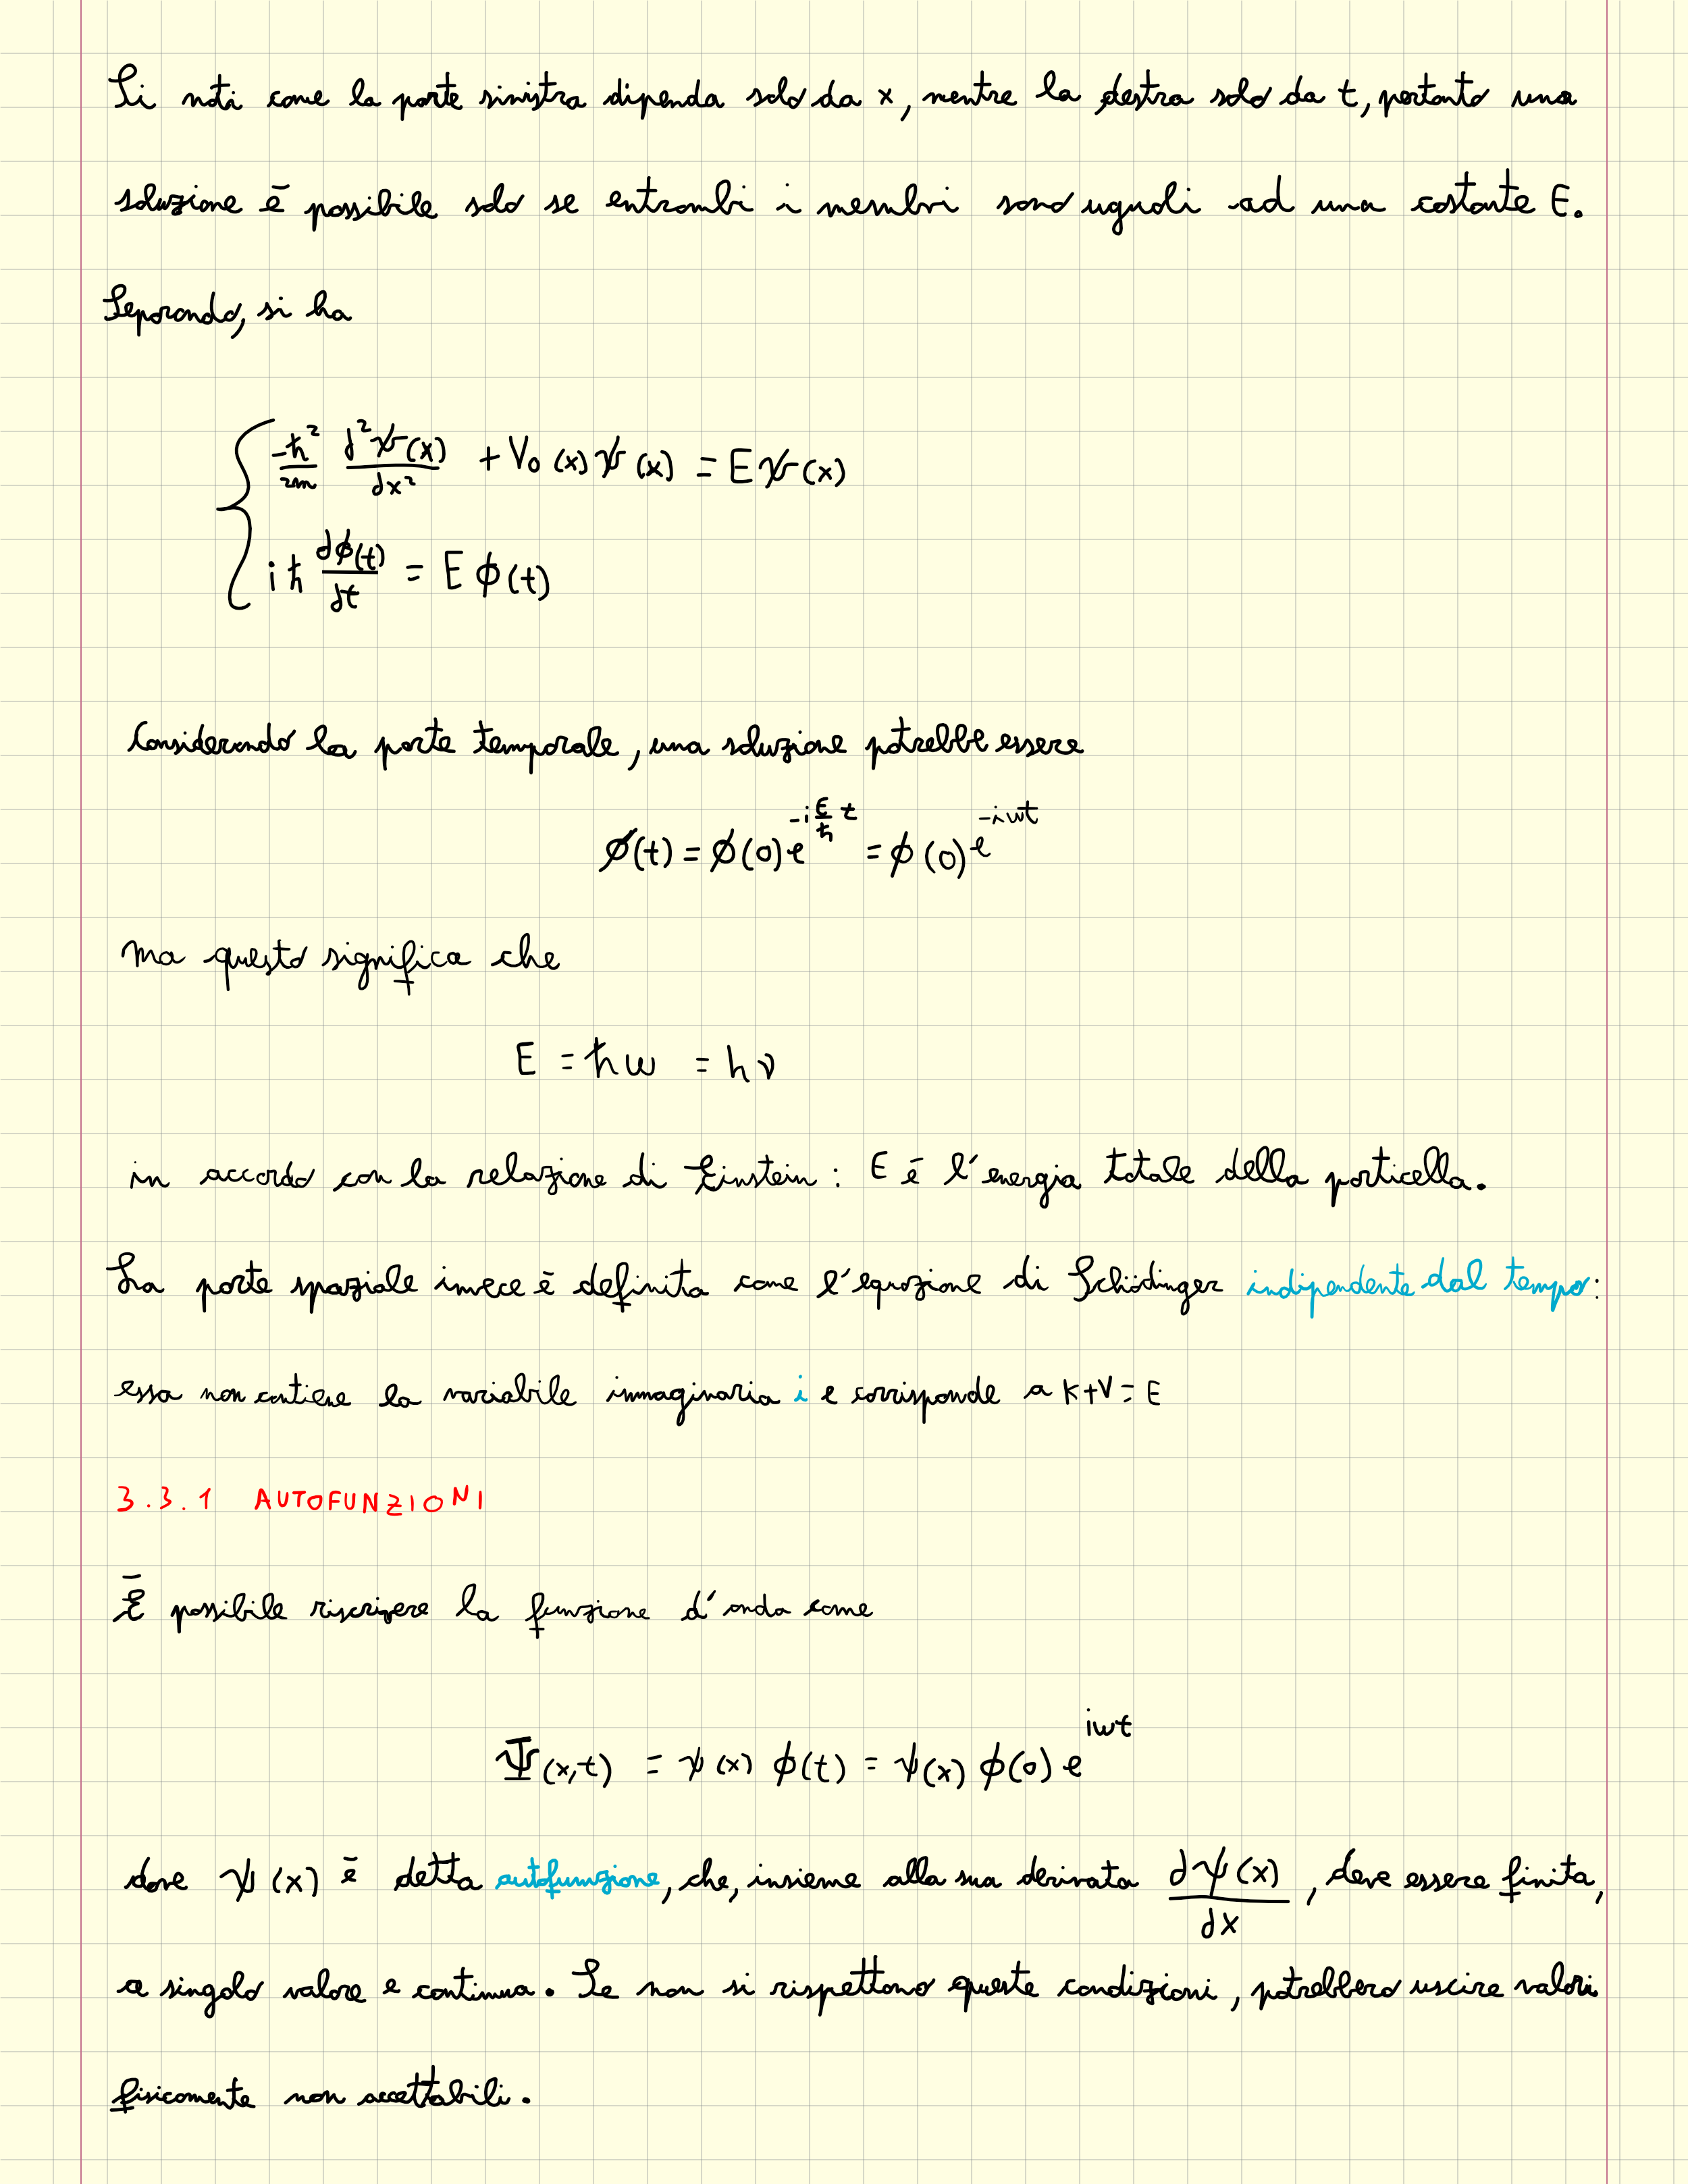 Si noti come la parte sinistra dipenda solo da x, mentre la destra solo da t, pertanto una
soluzione è possibile solo se entrambi i membri sono uguali ad una costante E.
Separando, si ha
-ħ²/2m d²ψ(x)/dx² + V₀(x)ψ(x) = Eψ(x)
iħ dϕ(t)/dt = E ϕ(t)
Considerando la parte temporale, una soluzione potrebbe essere
ϕ(t) = ϕ(0)e^(-i E/ħ t) = ϕ(0)e^(-iωt)
ma questo significa che
E = ħω = hν
in accordo con la relazione di Einstein: E è l'energia totale della particella.
La parte spaziale invece è definita come l'equazione di Schödinger indipendente dal tempo:
essa non contiene la variabile immaginaria i e corrisponde a K+V=E
3.3.1 AUTOFUNZIONI
È possibile riscrivere la funzione d'onda come
Ψ(x,t) = ψ(x) ϕ(t) = ψ(x) ϕ(0) e^(iωt)
dove ψ(x) è detta autofunzione, che, insieme alla sua derivata dψ(x)/dx, deve essere finita,
a singolo valore e continua. Se non si rispettono queste condizioni, potrebbero uscire valori
fisicamente non accettabili.